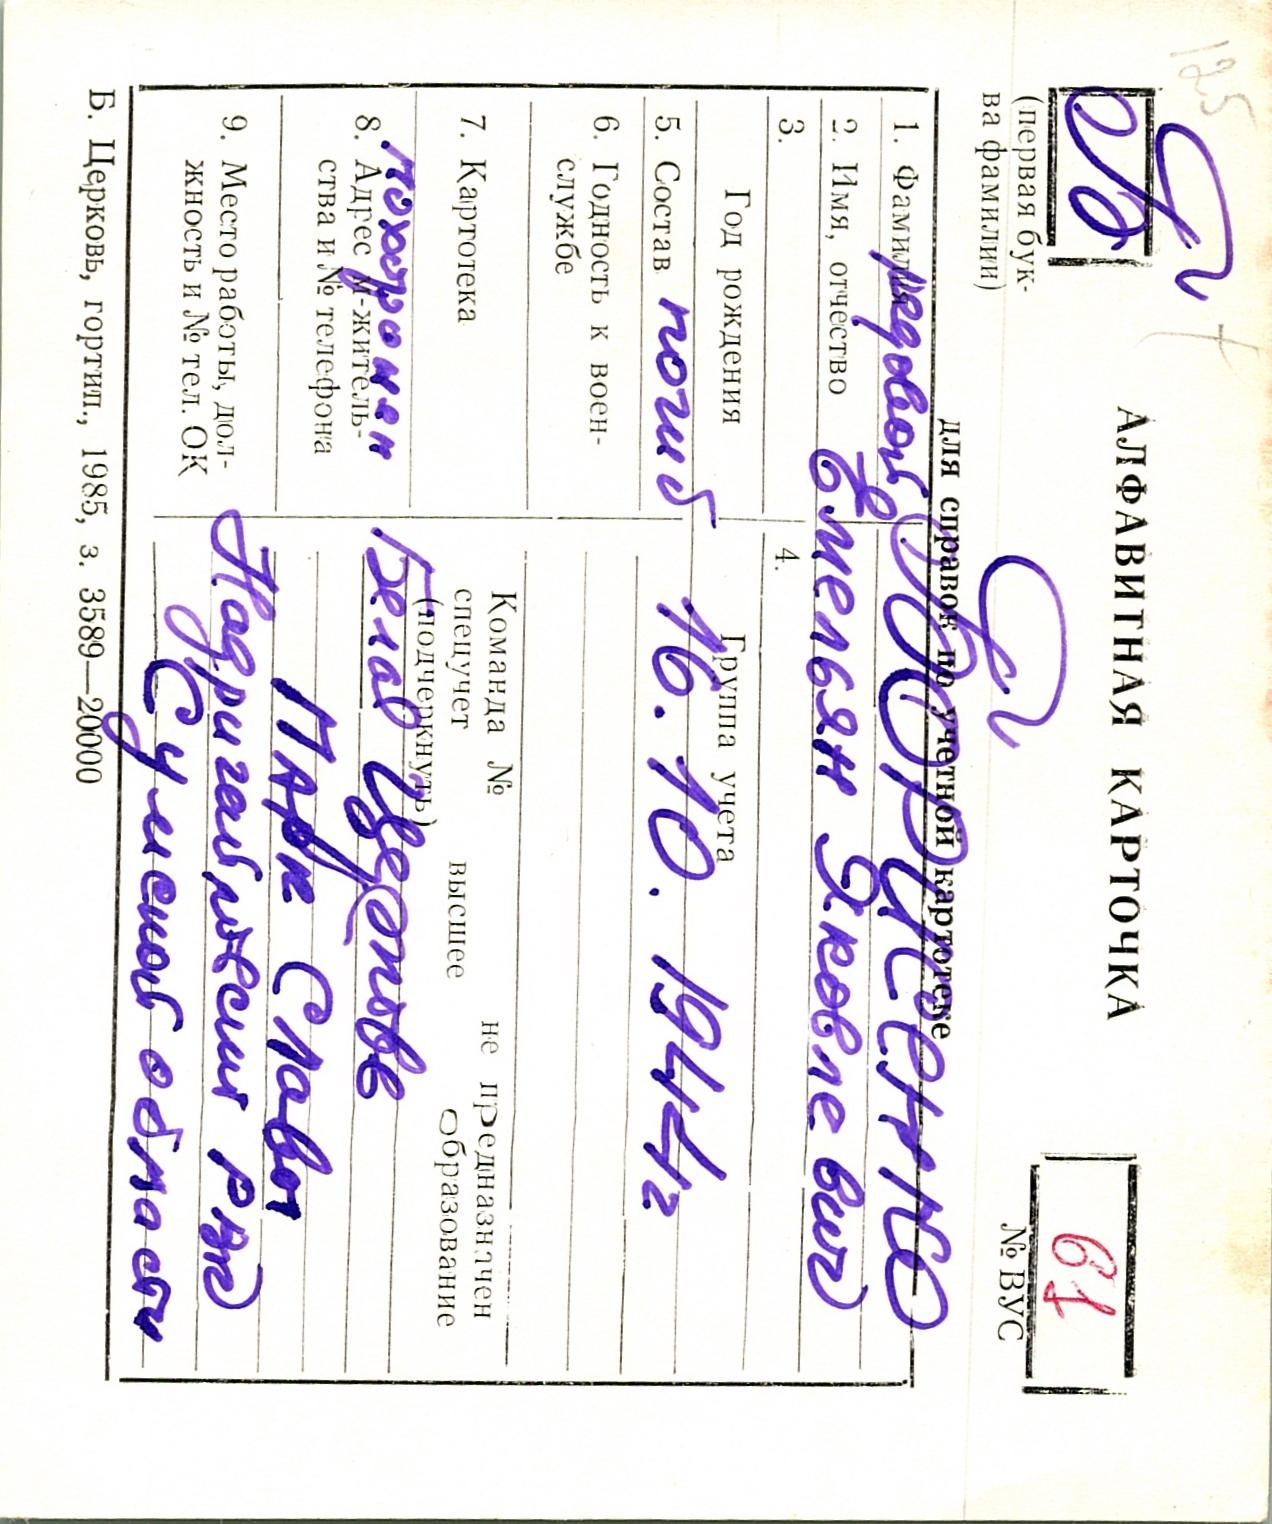 125
АЛФАВИТНАЯ КАРТОЧКА
(первая бук-
ва фамилии)
61
№ ВУС
для справок по учетной картотеке
1. Фамилия
рядовой БОРИСЕНКО
2. Имя, отчество Емельян Яковлевич
3.
4.
Год рождения
Группа учета
5. Состав погиб 16.10.1944г
6. Годность к воен-
службе
7. Картотека
Команда № не предназначен
спецучет высшее образование
(подчеркнуть)
похоронен
8. Адрес м-житель-
ства и № телефона
Белая Церковь
Парк Славы
9. Место работы, дол-
жность и № тел. ОК
РВК
Сумской области
Б. Церковь, гортип., 1985, з. 3589—20000